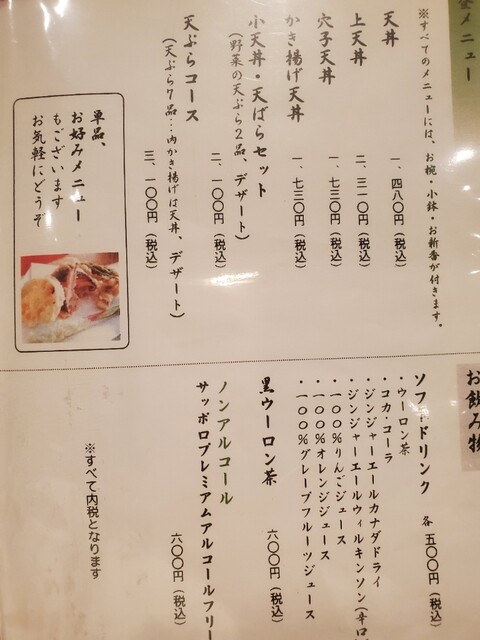 メニュー
※すべてのメニューには、お椀・小鉢・お新香が付きます。
天丼 一、四八〇円（税込）
上天丼 二、三一〇円（税込）
穴子天丼 一、七三〇円（税込）
かき揚げ天丼 一、七三〇円（税込）
小天丼・天ばらセット
（野菜の天ぷら2品、デザート） 二、一〇〇円（税込）
天ぷらコース
（天ぷら7品…内かき揚げは天丼、デザート） 三、一〇〇円（税込）
単品、
お好みメニュー
もございます
お気軽にどうぞ
お飲み物
ソフトドリンク 各 五〇〇円（税込）
・ウーロン茶
・コカ・コーラ
・ジンジャーエールカナダドライ
・ジンジャーエールウィルキンソン（辛口
・一〇〇％りんごジュース
・一〇〇％オレンジジュース
・一〇〇％グレープフルーツジュース
黒ウーロン茶 六〇〇円（税込）
ノンアルコール
サッポロプレミアムアルコールフリー
六〇〇円（税込）
※すべて内税となります